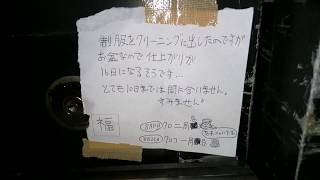 制服をクリーニングに出したのですが
お盆なので仕上がりが
16日になるそうです…
とても10日までは間に合いません。
すみません。
福
クロニ月
クロコ一月